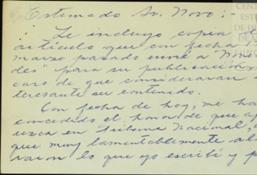 Estimado Sr. Novo:-
Le incluyo copia
artículo que con fecha
marzo pasado envié a "
des" para su publicación,
caso de que consideraran
teresante su contenido.
Con fecha de hoy, me ha
concedido el honor de que
en Nacional,
que muy lamentablemente
lo que yo escribí y